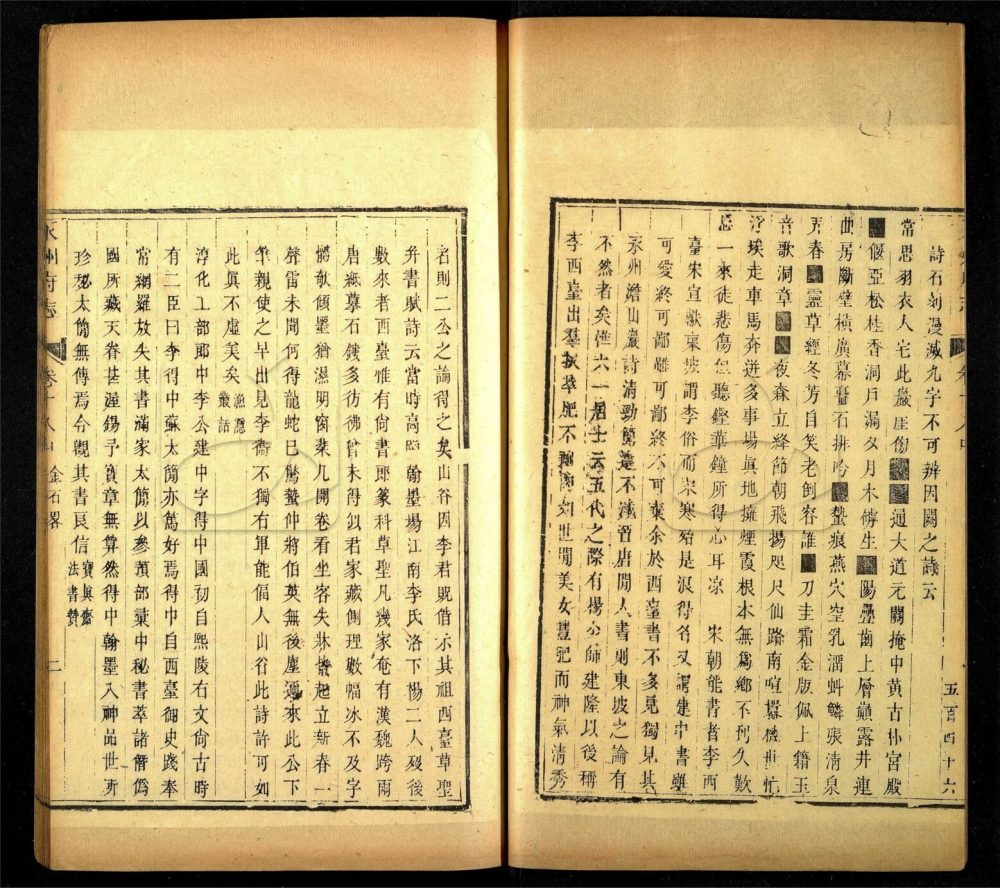 詩石刻漫滅九字不可辨因闕之詩云
常思羽衣人宅此巖厓傍■■通大道元關掩中黃古朴宮殿
■偃亞松桂香洞戶漏夕月木傍生■陽疊齒上層巔露井連
曲房斷堂橫廣幕疊石排吟■蟄痕燕穴空乳濡蚪鱗張清泉
弄春■靈草經冬芳自笑老倒容誰■刀圭霜金版佩上籍玉
音歌洞章■■夜森立絳節朝飛揚咫尺仙路南喧囂後世忙
浮埃走車馬奔迸多事場眞地擁煙霞根本無爲鄉不到久歎
忘一來徒悲傷但聽鏗華鐘所得心耳凉 宋朝能書者李西
臺宋宣獻東坡謂李俗而宋寒殆是浪得名又謂建中書雖
可愛終可鄙雖可鄙終不可棄余於西臺書不多見獨見其
永州澹山巖詩清勁簡遠不減晉唐閒人書則東坡之論有
不然者矣惟六一居士云五代之際有楊公師建隆以後稱
李西臺出羣拔萃肥不剩肉如世閒美女豐肥而神氣清秀
五百四十六
者則二公之論得之矣山谷因李君貺借示其祖西臺草聖
幷書賦詩云當時高 翰墨場江南李氏洛下楊二人歿後
數來者西臺惟有尙書郎篆科草聖凡幾家奄有漢魏跨兩
唐紙摹石鏤多彷彿曾未得似君家藏側理數幅冰不及字
體欹傾墨猶濕明窗棐几開卷看坐客失牀皆起立新春一
聲雷未聞何得龍蛇已驚蟄仲將伯英無後塵邇來此公下
筆親使之早出見李衞不獨右軍能偪人山谷此詩許可如
此眞不虛美矣 漁隱叢話
淳化工部郎中李公建中字得中國初自熙陵右文尙古時
有二臣曰李得中蘇太簡亦篤好焉得中自西臺御史踐奉
常網羅放失其書滿家太簡以參預部彙中秘書萃諸僭僞
國所藏天眷甚渥錫予寶章無算然得中翰墨入神品世所
珍秘太簡無傳焉今觀其書良信 寶眞齋法書贊
永州府志
卷十八中 金石略
二